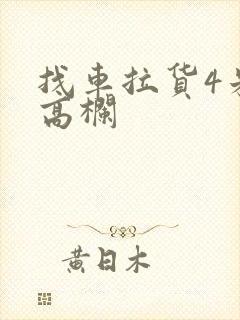 找車拉貨4
高欄
黃日木